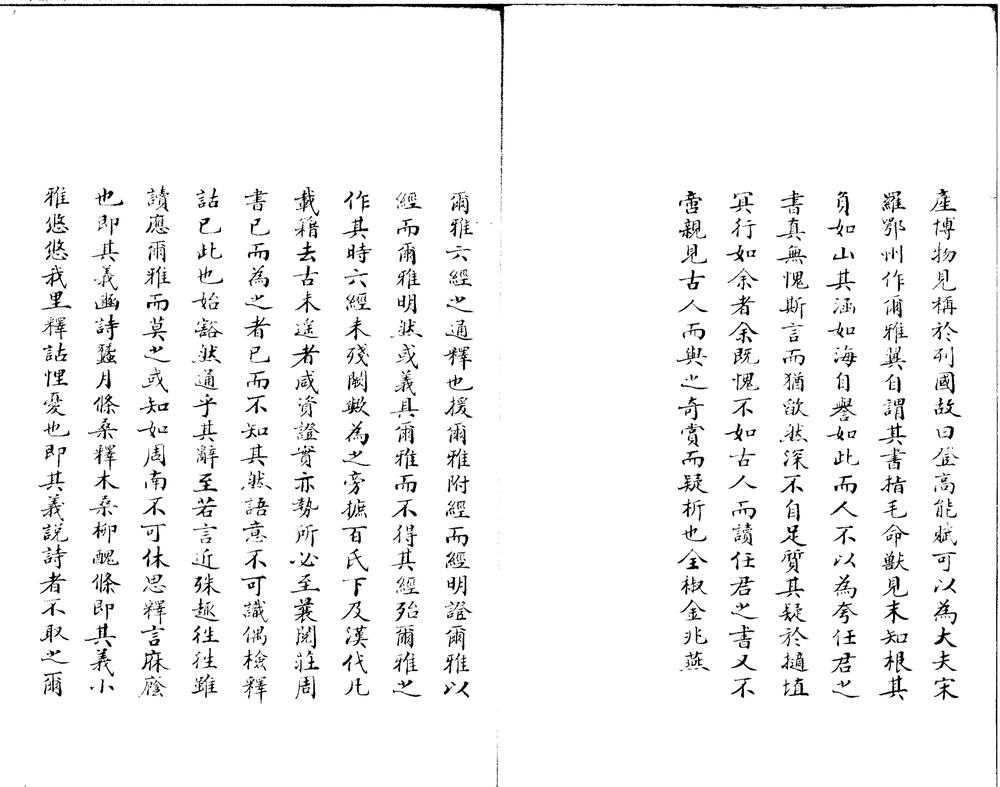 產博物見稱於列國故曰登高能賦可以為大夫宋
羅鄂州作爾雅翼自謂其書指毛命獸見末知根其
負如山其涵如海自譽如此而人不以為夸任君之
書真無愧斯言而猶欿然深不自足質其疑於擿埴
冥行如余者余既愧不如古人而讀任君之書又不
啻親見古人而與之奇賞而疑析也全椒金兆燕
爾雅六經之通釋也援爾雅附經而經明證爾雅以
經而爾雅明然或義具爾雅而不得其經殆爾雅之
作其時六經未殘闕歟為之旁摭百氏下及漢代凡
載籍去古未遙者咸資證實亦勢所必至曩閱莊周
書已而為之者已而不知其然語意不可識偶檢釋
詁已此也始豁然通乎其辭至若言近殊趣徃徃雖
讀應爾雅而莫之或知如周南不可休思釋言庥廕
也即其義豳詩蠶月條桑釋木桑柳醜條即其義小
雅悠悠我里釋詁悝憂也即其義說詩者不取之爾